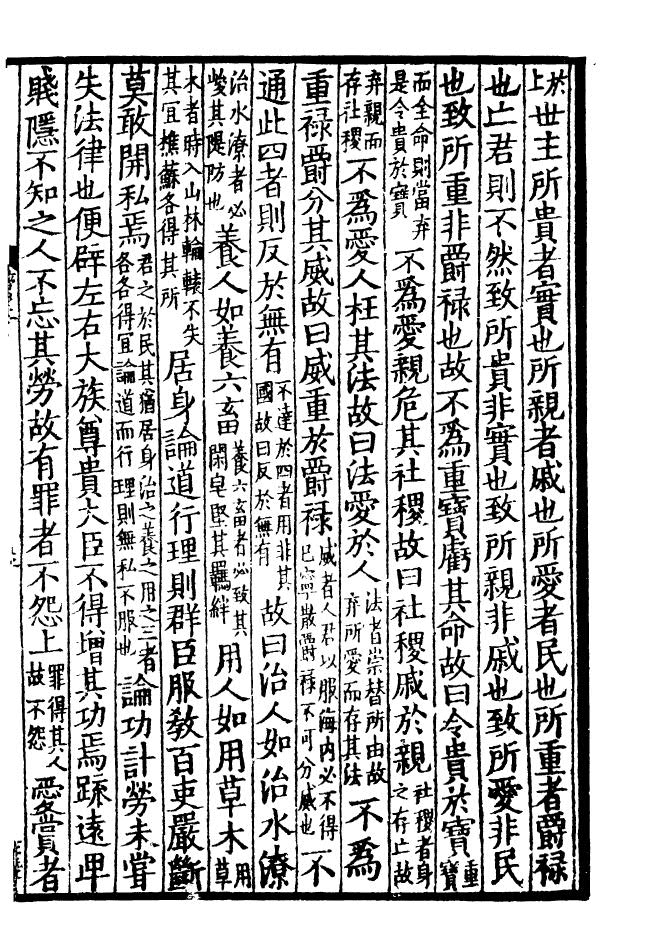 於上世主所貴者實也所親者戚也所愛者民也所重者爵祿
也亡君則不然致所貴非實也致所親非戚也致所愛非民
也致所重非爵祿也故不爲重寶虧其命故曰令貴於寶重寶
而全命則當弃是令貴於寶不爲愛親危其社稷故曰社稷戚於親社稷者身之存亡故
弃親而存社稷不爲愛人枉其法故曰法愛於人法者崇替所由故弃所愛而存其法不爲
重祿爵分其威故曰威重於爵祿威者人君以服海内必不得已寧散爵祿不可分威也不
通此四者則反於無有不達於四者用非其國故曰反於無有故曰治人如治水潦
治水潦者必峻其隄防也養人如養六畜養六畜者必致其閑皁堅其羈絆用人如用草木用草
木者時入山林輪轅不失其宜樵蘇各得其所居身論道行理則群臣服敎百吏嚴斷
莫敢開私焉君之於民其猶居身治之養之用之三者各各得宜論道而行理則無私不服也論功計勞未甞
失法律也便辟左右大族尊貴大臣不得增其功焉踈遠卑
賤隱不知之人不忘其勞故有罪者不怨上罪得其人故不怨愛賞者